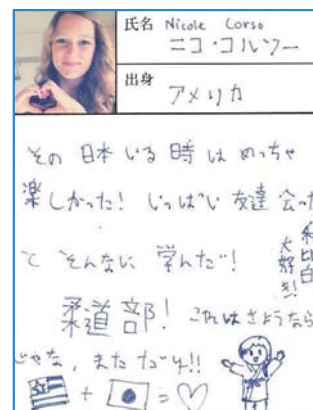 氏名 Nicole Corso
ニコ・コルソー
出身
アメリカ
その日本いる時はめっちゃ
楽しかった！いっぱい友達会った
と そんなに 学んだ！
大好き！
柔道部！これはさようなら
じゃな、また だよ!!
+ = ♡